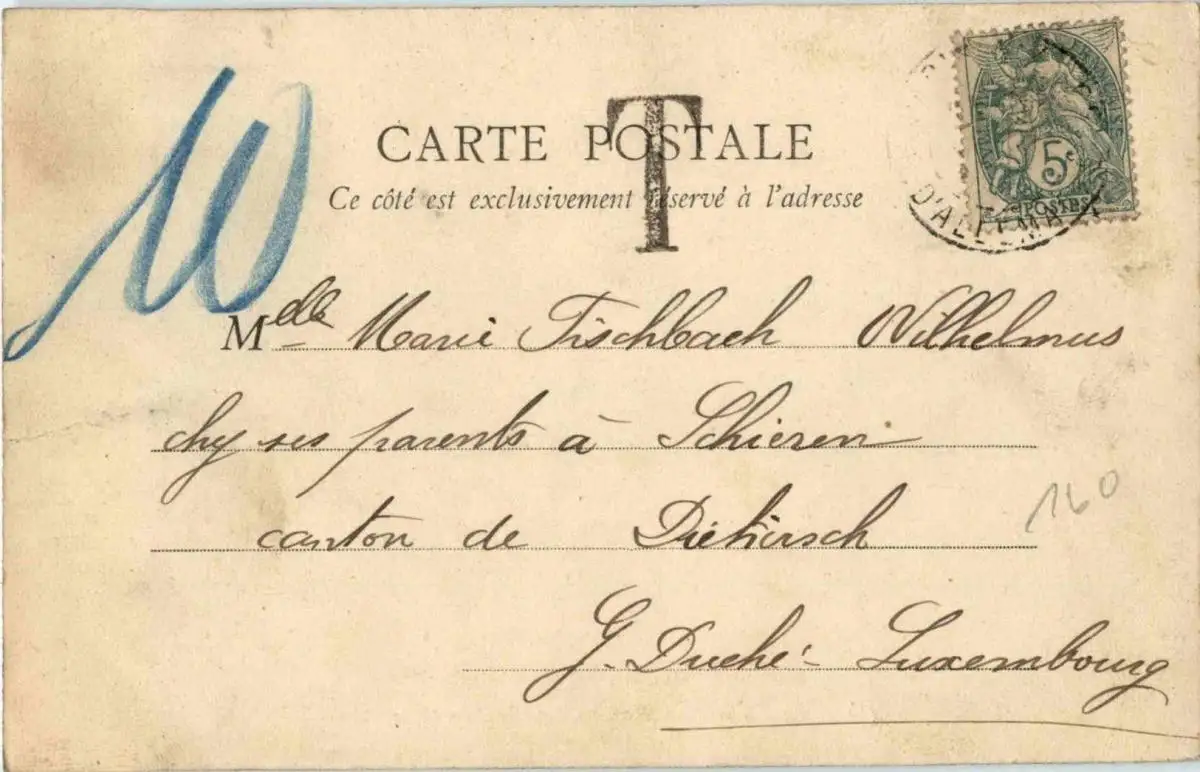 10
CARTE POSTALE
T
Ce côté est exclusivement réservé à l'adresse
5c
POSTES
D'ALLEMA
Mdlle Marie Fischbach Wilhelmus
chz ses parents à Schieren
canton de Diekirsch
G. Duché Luxembourg
160